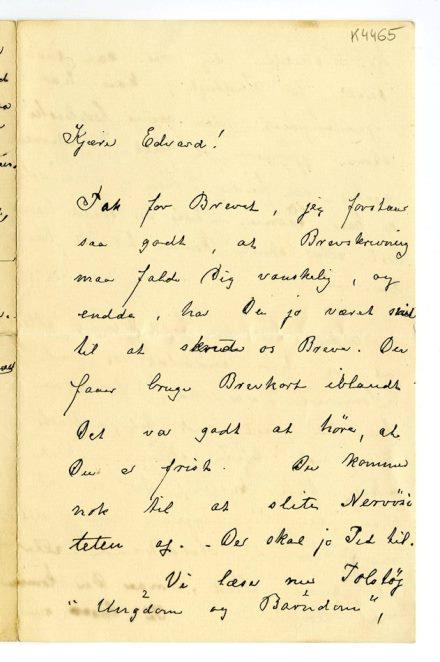 K4465
Kjære Edvard!
Tak for Brevet, jeg forstaar
saa godt, at Brevskrivning
maa falde Dig vanskelig, og
endda, har Du jo været
til at skrive os Breve. Du
faar bruge Brevkort iblandt
Det var godt at høre, at
Du er frisk. Du kommer
nok til at slite Nervösi
teten af. - Der skal jo Tid til.
Vi læser nu Tolstøj
"Ungdom og Barndom",
2 1